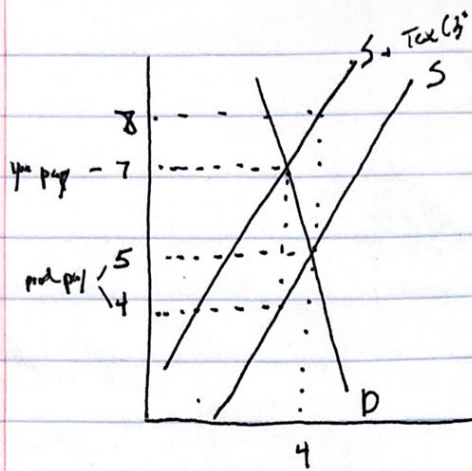 S + Tax (3
S
8
you pay - 7
5
prod pay
4
D
4